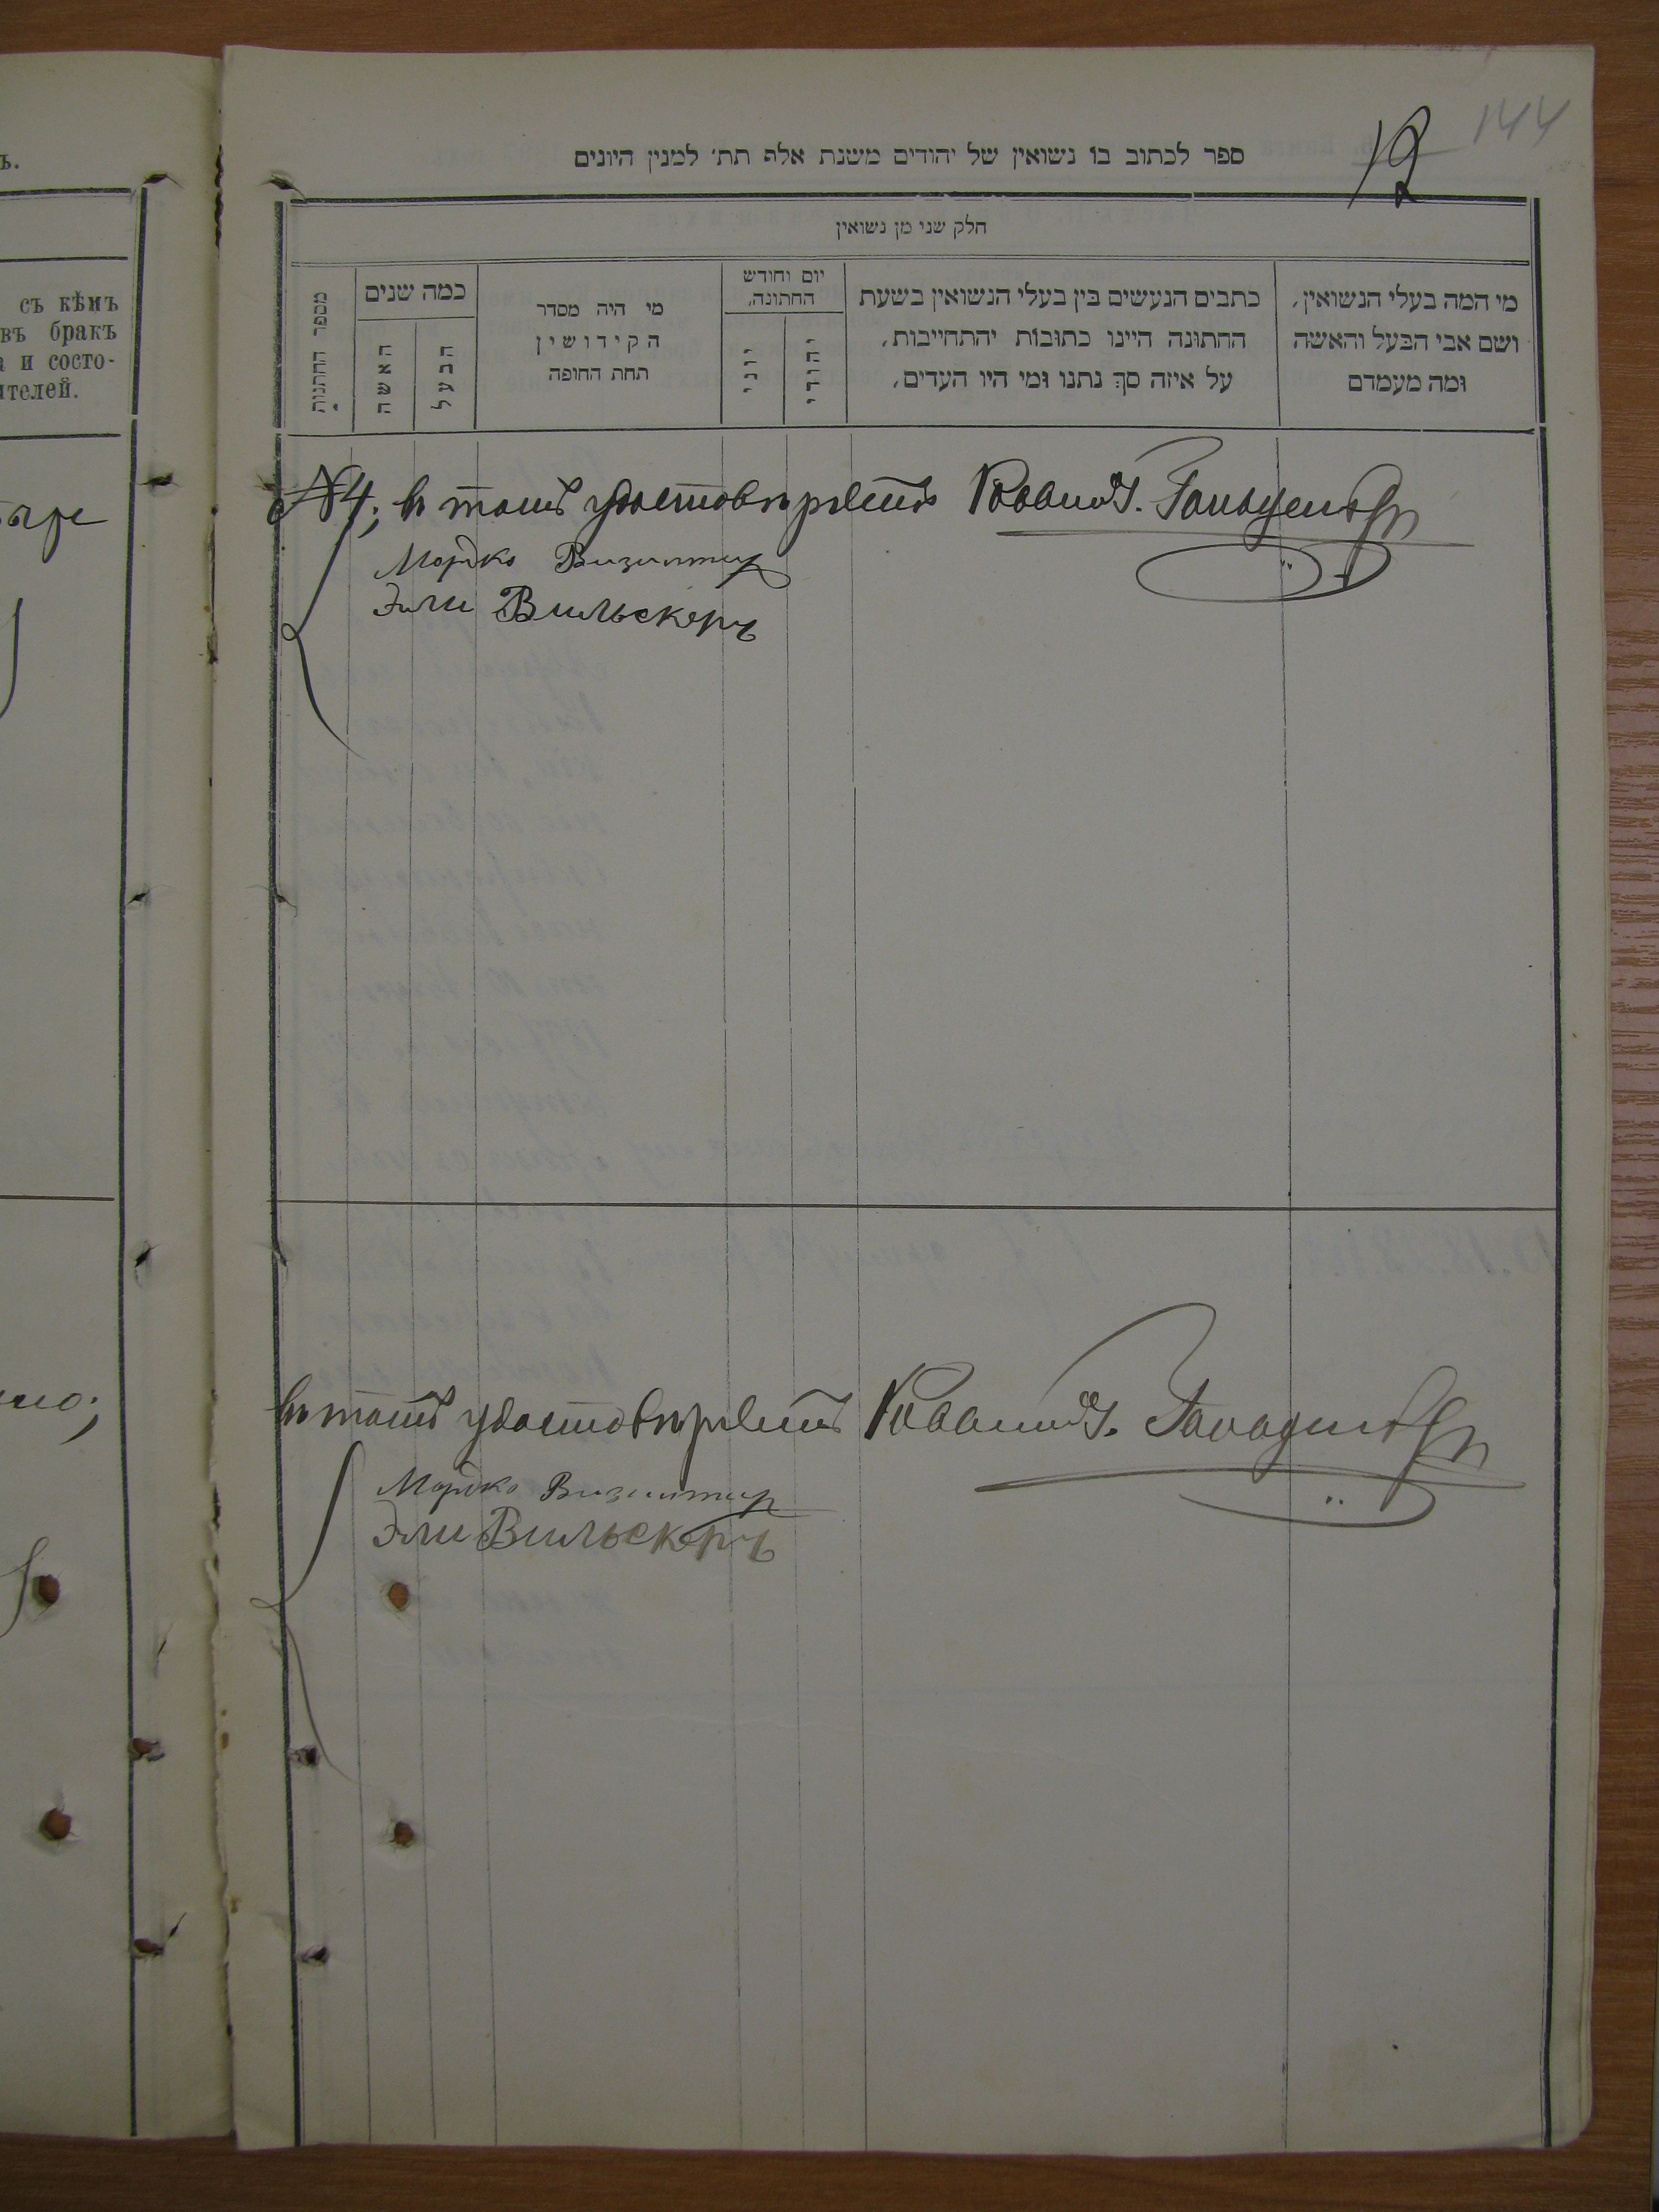 ъ.
съ кѣмъ
въ бракъ
а и состо-
ителей.
144
12
ספר לכתוב בו נשואין של יהודים משנת אלף תת׳ למנין היונים
חלק שני מן נשואין
מי המה בעלי הנשואין,
ושם אבי הבעל והאשה
ומה מעמדם
כתבים הנעשים בין בעלי הנשואין בשעת
החתונה היינו כתובות יהתחייבות,
על איזה סך נתנו ומי היו העדים,
יום וחודש
החתונה,
יהודי
יוני
מי היה מסדר
הקידושין
תחת החופה
כמה שנים
הבעל
האשה
מספר החתנות
№4; въ томъ удостовѣряетъ Раввинъ
Мордко Визилтир
Эли Вильскеръ
въ томъ удостовѣряетъ Раввинъ
Мордко Визилтир
Эли Вильскеръ